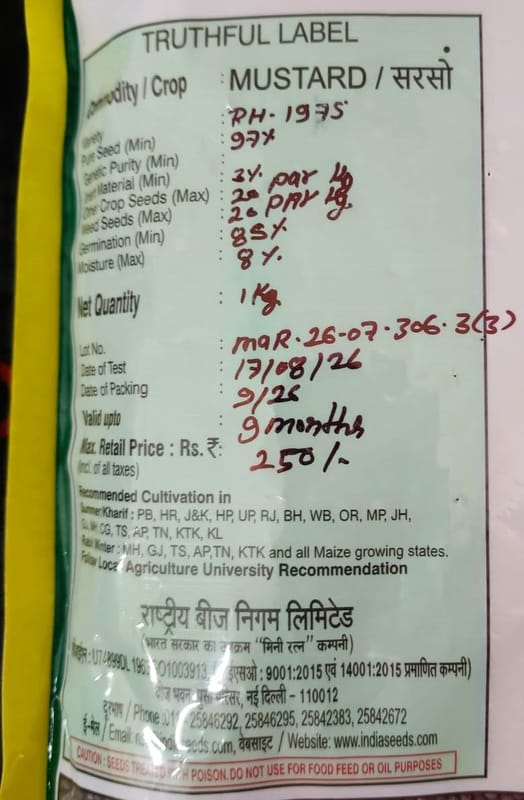 TRUTHFUL LABEL
Commodity / Crop : MUSTARD / सरसो
Variety : RH-1975
Pure Seed (Min) : 97%
Genetic Purity (Min) :
Inert Material (Min) : 3%
Other Crop Seeds (Max) : 20 par kg
Weed Seeds (Max) : 20 par kg.
Germination (Min) : 85%
Moisture (Max) : 8%.
Net Quantity : 1 Kg
Lot No. : maR-26-07-306-3(3)
Date of Test : 17/08/26
Date of Packing : 9/26
Valid upto : 9 months
Max. Retail Price : Rs. ₹: 250/-
(Incl. of all taxes)
Recommended Cultivation in
Summer/Kharif : PB, HR, J&K, HP, UP, RJ, BH, WB, OR, MP, JH,
GJ, MH, CG, TS, AP, TN, KTK, KL
Rabi/Winter : MH, GJ, TS, AP,TN, KTK and all Maize growing states.
Follow Local Agriculture University Recommendation
राष्ट्रीय बीज निगम लिमिटेड
(भारत सरकार का उपक्रम "मिनी रत्न" कम्पनी)
: 9001:2015 एवं 14001:2015 प्रमाणित कम्पनी)
बीज भवन, पूसा परिसर, नई दिल्ली - 110012
दूरभाष / Phone : 25846292, 25846295, 25842383, 25842672
ई-मेल / Email: वेबसाइट / Website: www.indiaseeds.com
CAUTION : SEEDS TREATED WITH POISON. DO NOT USE FOR FOOD FEED OR OIL PURPOSES